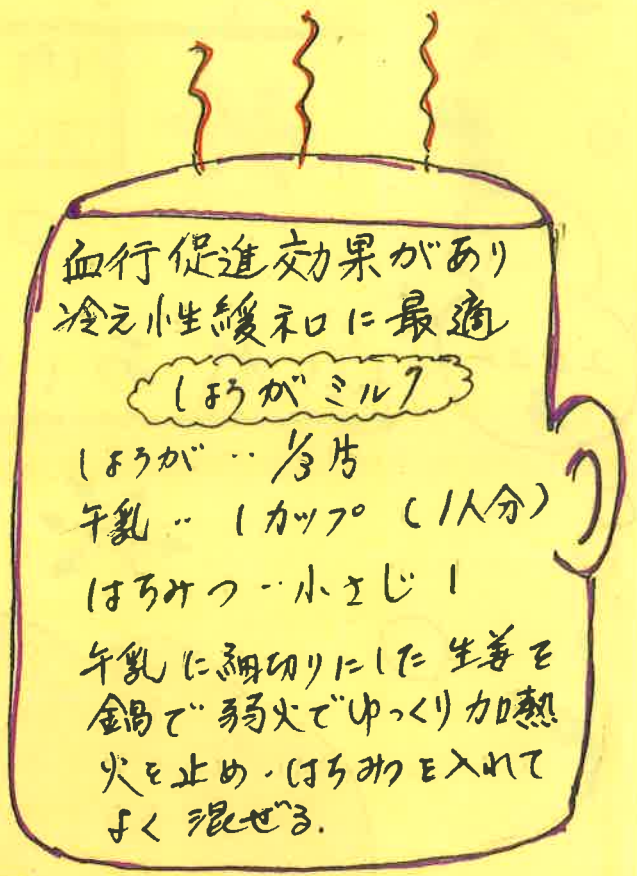 血行促進効果があり
冷え性緩和に最適
しょうがミルク
しょうが‥1/3片
牛乳‥1カップ(1人分)
はちみつ‥小さじ1
牛乳に細切りにした生姜を
鍋で弱火でゆっくり加熱
火を止め・はちみつを入れて
よく混ぜる.